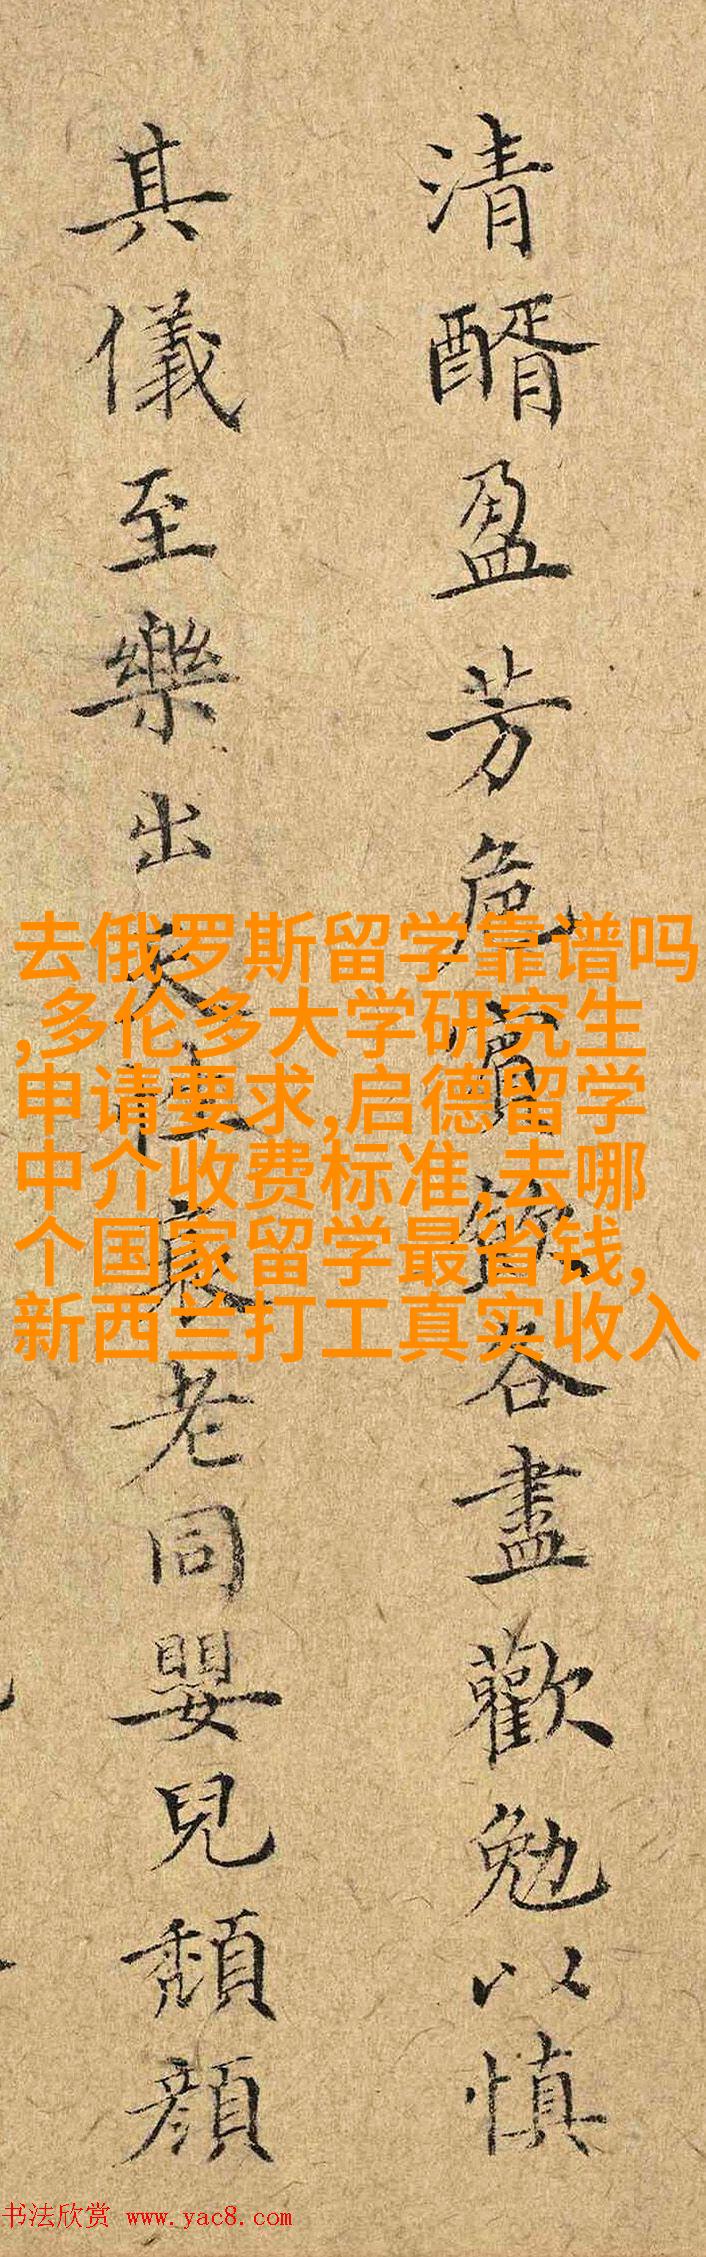 清醑盈芳卮賓飲各盡歡勉以慎
其儀至樂出天性衰老同嬰兒頽顔
去俄罗斯留学靠谱吗
,多伦多大学研究生
申请要求,启德留学
中介收费标准,去哪
个国家留学最省钱,
新西兰打工真实收入
书法欣赏 www.yac8.com